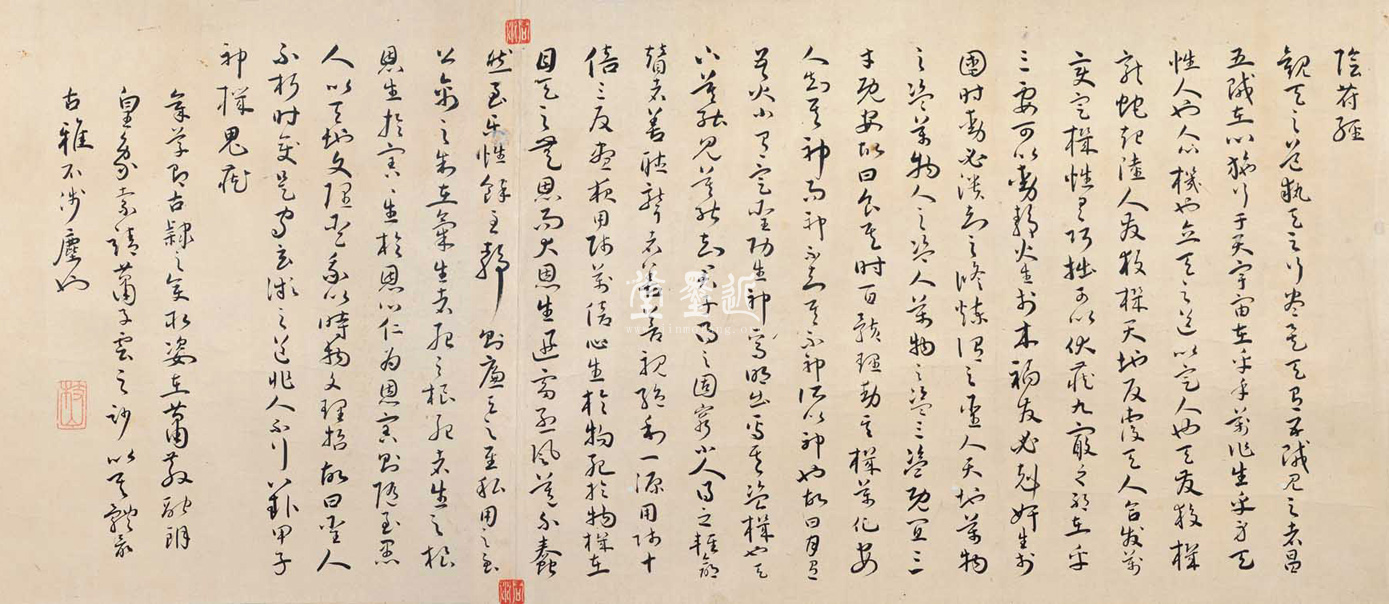 陰符經
觀天之道執天之行盡矣天有五賊見之者昌
五賊在心施行于天宇宙在乎手萬化生乎身天
性人也人心機也立天之道以定人也天發殺機
龍蛇起陸人發殺機天地反覆天人合發萬
變定機性有巧拙可以伏藏九竅之邪在乎
三要可以動靜火生於木禍發必剋奸生於
國時動必潰知之修煉謂之聖人天地萬物
之盜萬物人之盜人萬物之盜三盜既宜三
才既安故曰食其時百骸理動其機萬化安
人知其神而神不知其不神所以神也故日月有
大小有定聖功生神焉明出焉其盜機也天
下莫能見莫能知君子得之固窮小人得之輕命
瞽者善聽聾者善視絕利一源用師十
倍三反晝夜用師萬倍心生於物死於物機在
目天之無恩而大恩生迅雷烈風莫不蠢
然至樂性餘至靜則廉天之至私用之至
公禽之制在氣生者死之根死者生之根
恩生於害害生於恩以仁為恩害則隨至愚
人以天地文理聖我以時物文理哲故曰聖人
不朽時變是守玄微之道非人不行八卦甲子
神機鬼藏
章草即古隸之變於姿在蕭散融朗
皇象索靖蕭子雲之妙以其體氣
古雅不涉塵也
枝山
近墨堂